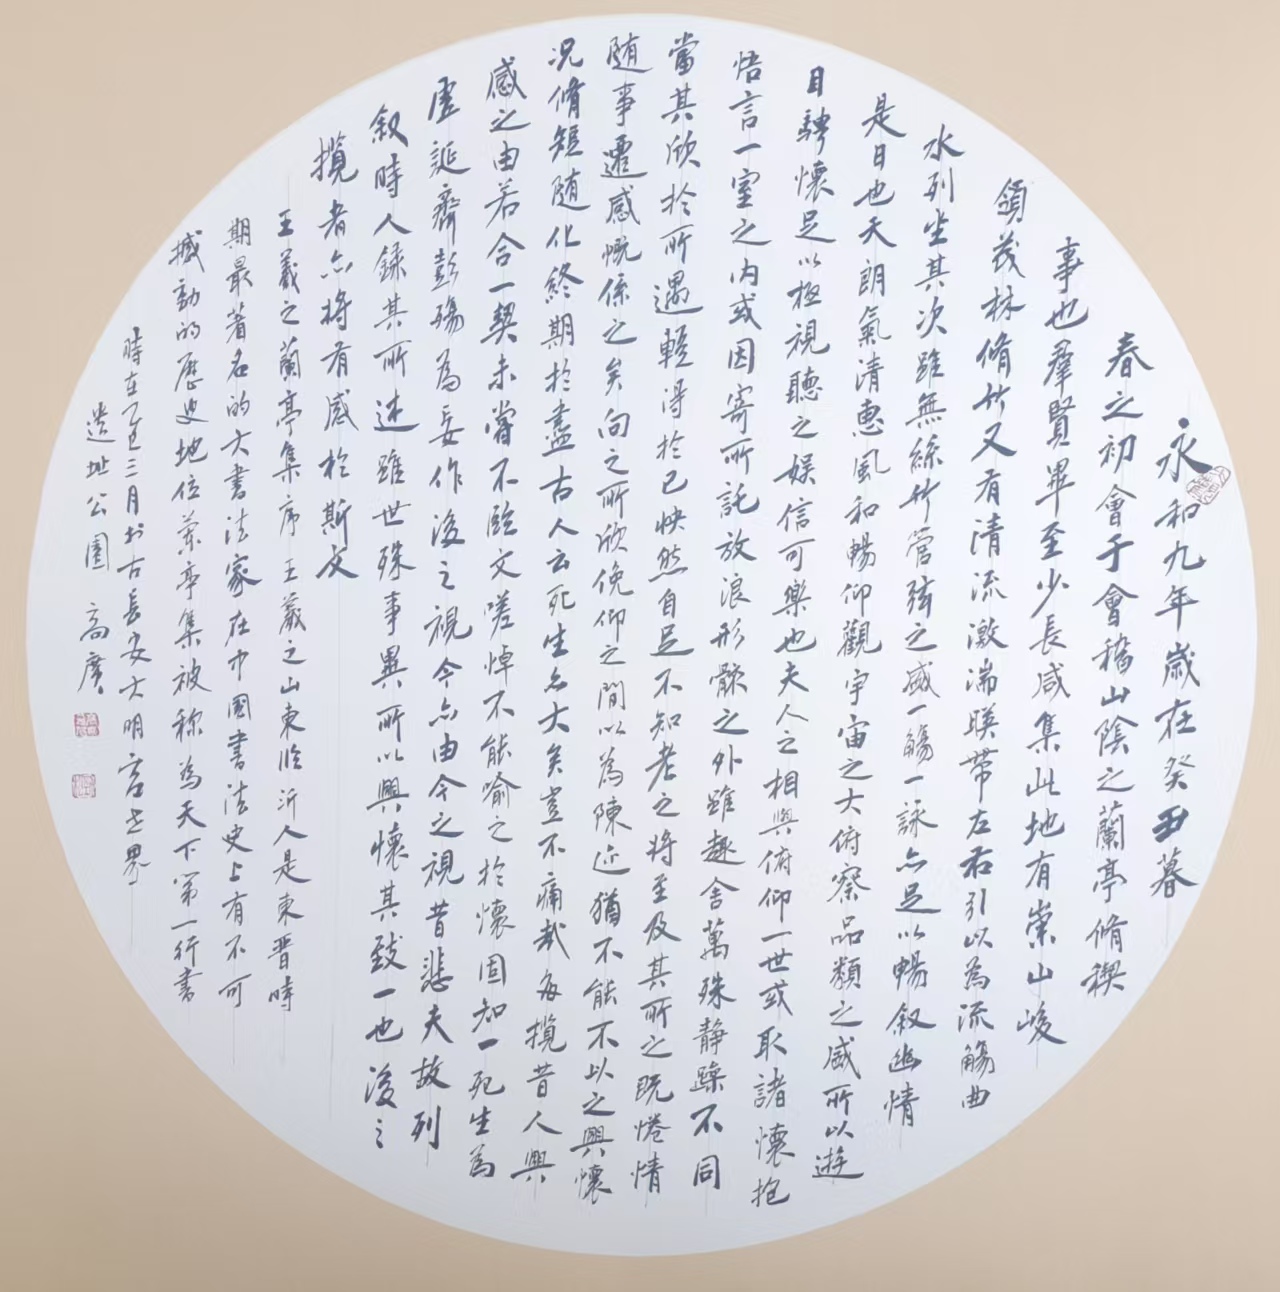 永和九年歲在癸丑暮
春之初會于會稽山陰之蘭亭脩禊
事也羣賢畢至少長咸集此地有崇山峻
領茂林脩竹又有清流激湍暎帶左右引以為流觴曲
水列坐其次雖無絲竹管弦之盛一觴一詠亦足以暢叙幽情
是日也天朗氣清惠風和暢仰觀宇宙之大俯察品類之盛所以遊
目騁懷足以極視聽之娛信可樂也夫人之相與俯仰一世或取諸懷抱
悟言一室之內或因寄所託放浪形骸之外雖趣舍萬殊静躁不同
當其欣於所遇蹔得於己怏然自足不知老之將至及其所之既惓情
随事遷感慨係之矣向之所欣俛仰之間以為陳迹猶不能不以之興懷
況脩短随化終期於盡古人云死生亦大矣豈不痛哉每攬昔人興
感之由若合一契未嘗不臨文嗟悼不能喻之於懷固知一死生為
虛誕齊彭殤為妄作後之視今亦由今之視昔悲夫故列
叙時人録其所述雖世殊事異所以興懷其致一也後之
攬者亦將有感於斯文
王羲之蘭亭集序王羲之山東临沂人是東晋時
期最著名的大書法家在中國書法史上有不可
撼動的歷史地位蘭亭集被称為天下第一行書
時在乙巳三月於古長安大明宫世界
遗址公園 高廣